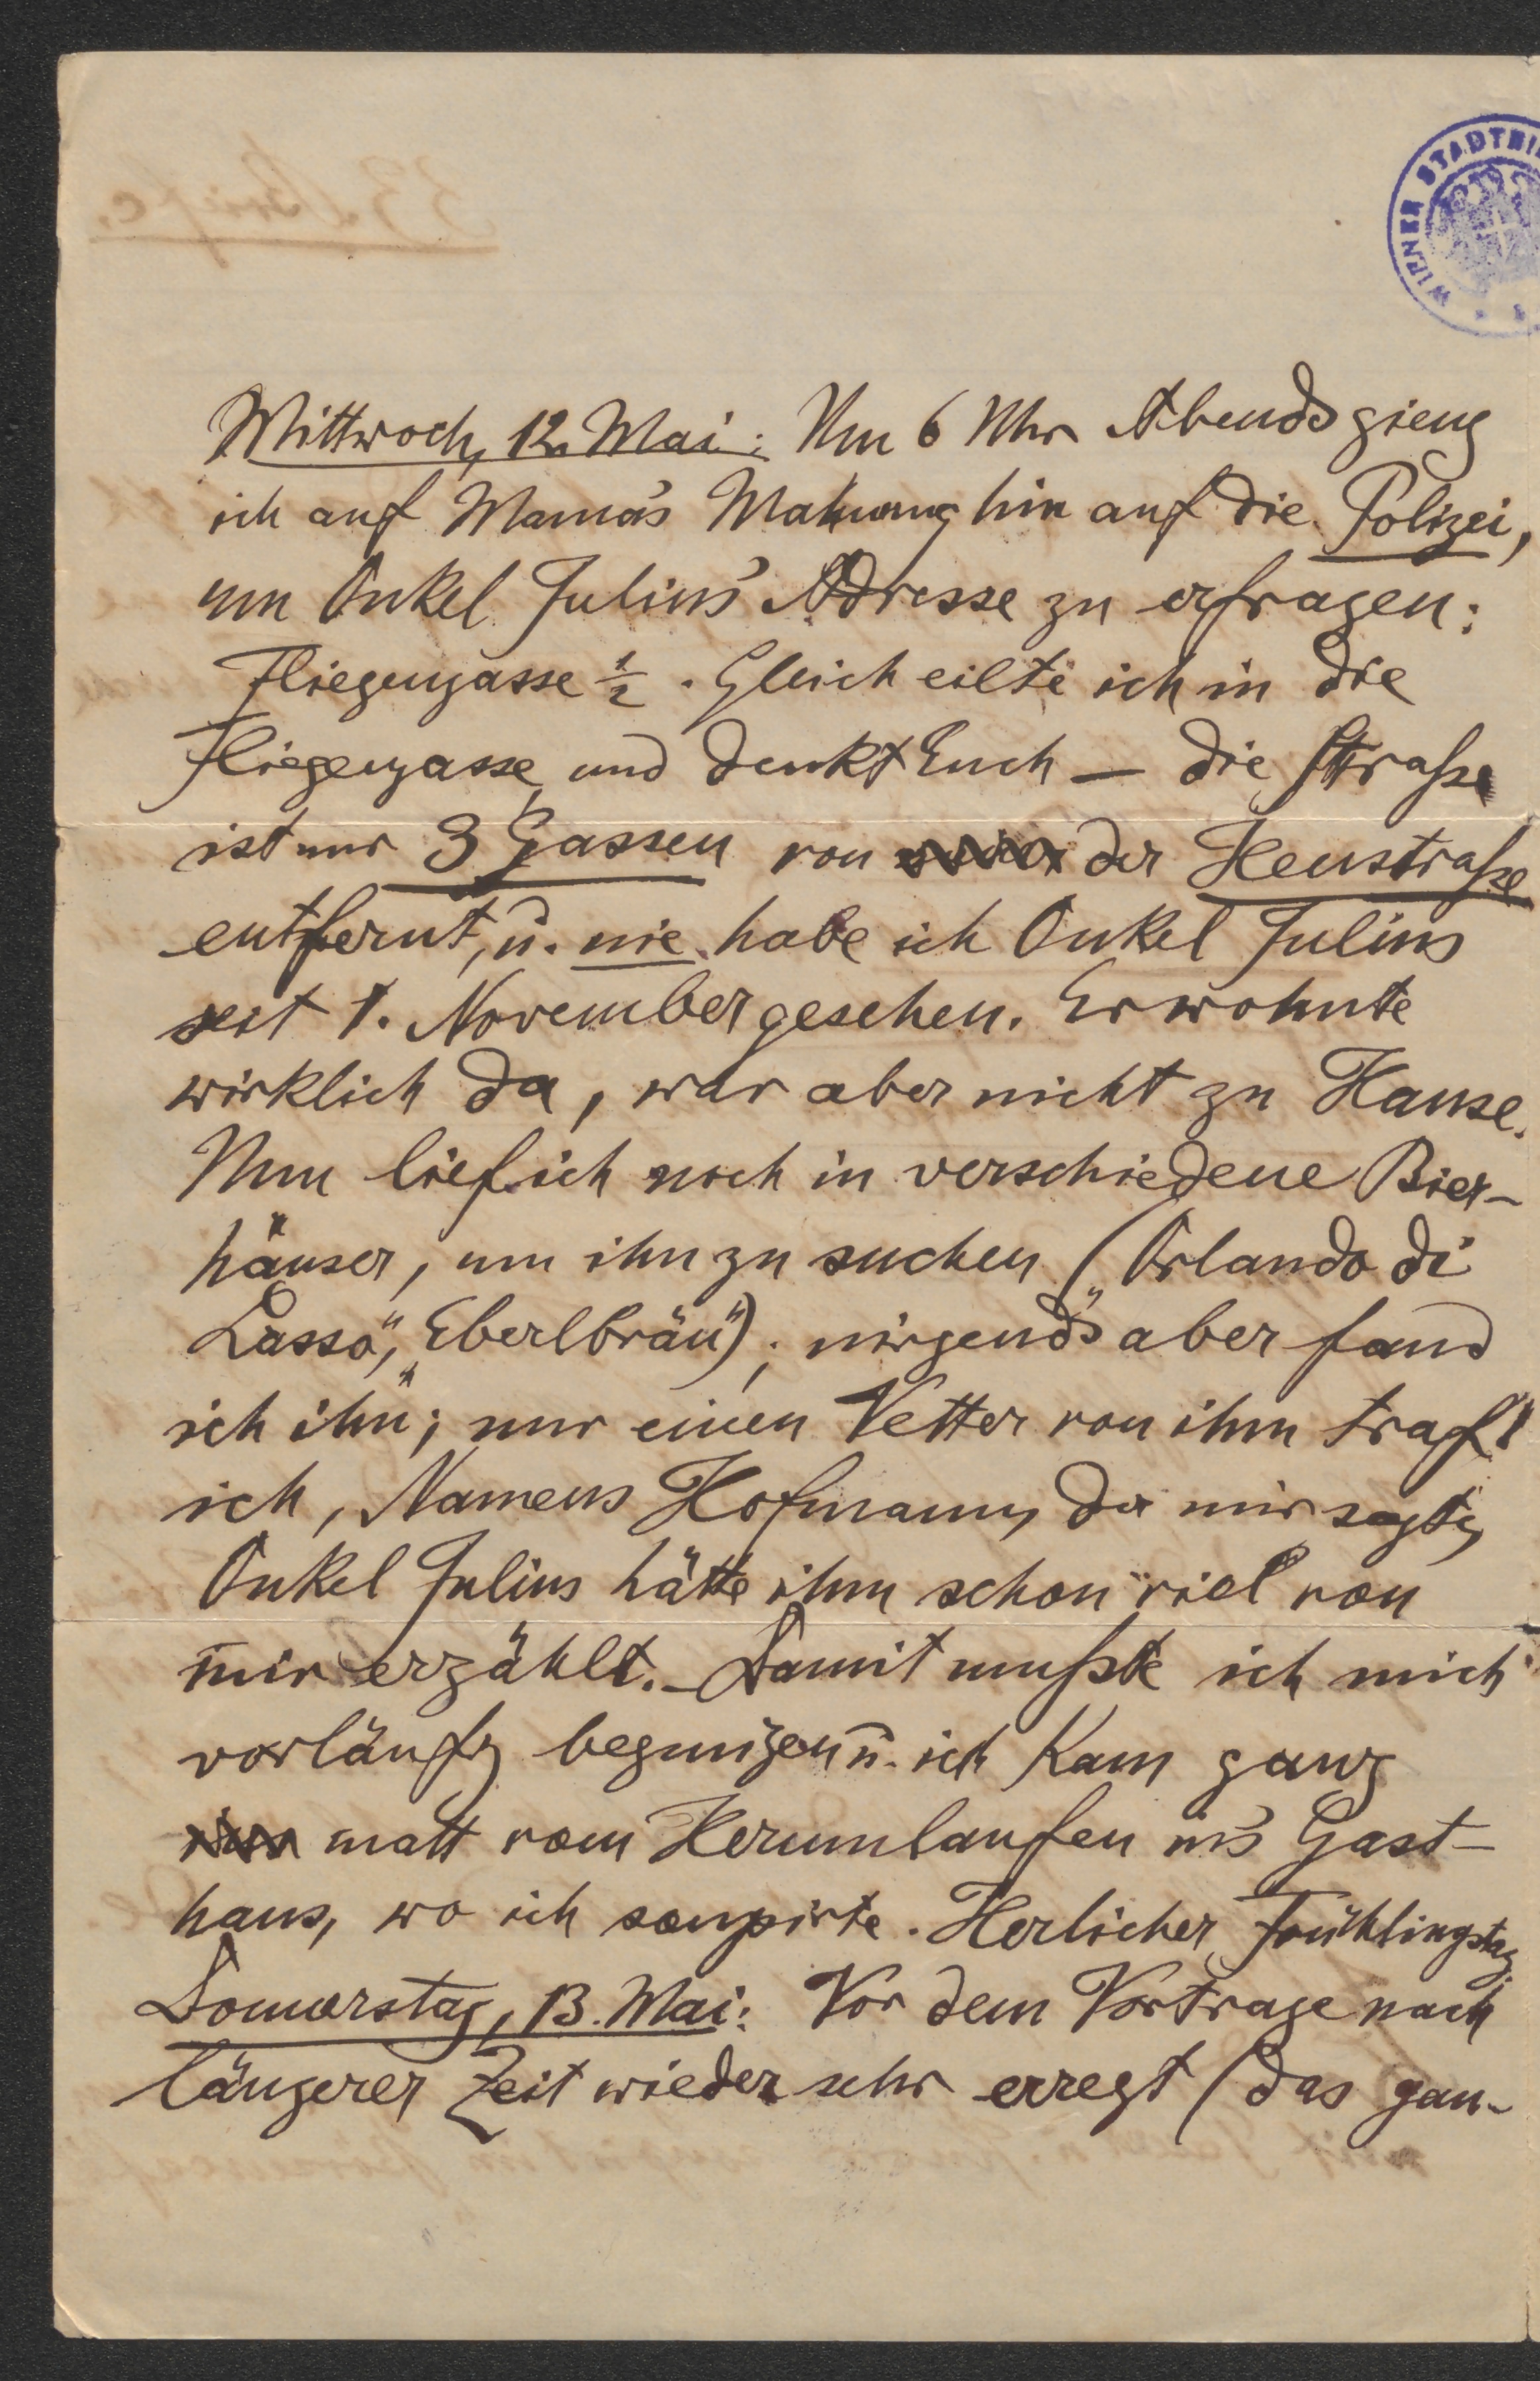 WIENER STADTBI
Mittwoch, 12. Mai: Um 6 Uhr Abends gieng
ich auf Mama's Mahnung hin auf die Polizei,
um Onkel Julius' Adresse zu erfragen:
Fliegengasse ½. Gleich eilte ich in die
Fliegengasse und denkt Euch — die Straße
ist nur 3 Gassen von der Heustraße
entfernt, u. nie habe ich Onkel Julius
seit 1. November gesehen. Er wohnte
wirklich da, war aber nicht zu Hause.
Nun lief ich noch in verschiedene Bier-
häuser, um ihn zu suchen („Orlando di
Lasso", „Eberlbräu"); nirgends aber fand
ich ihn; nur einen Vetter von ihm traf
ich, Namens Hofmann, der mir sagte,
Onkel Julius hätte ihm schon viel von
mir erzählt. – Damit mußte ich mich
vorläufig begnügen u. ich kam ganz
matt vom Herumlaufen in's Gast-
haus, wo ich soupirte. Herlicher Frühlingstag.
Donnerstag, 13. Mai: Vor dem Vortrage nach
längerer Zeit wieder sehr erregt (das gan-